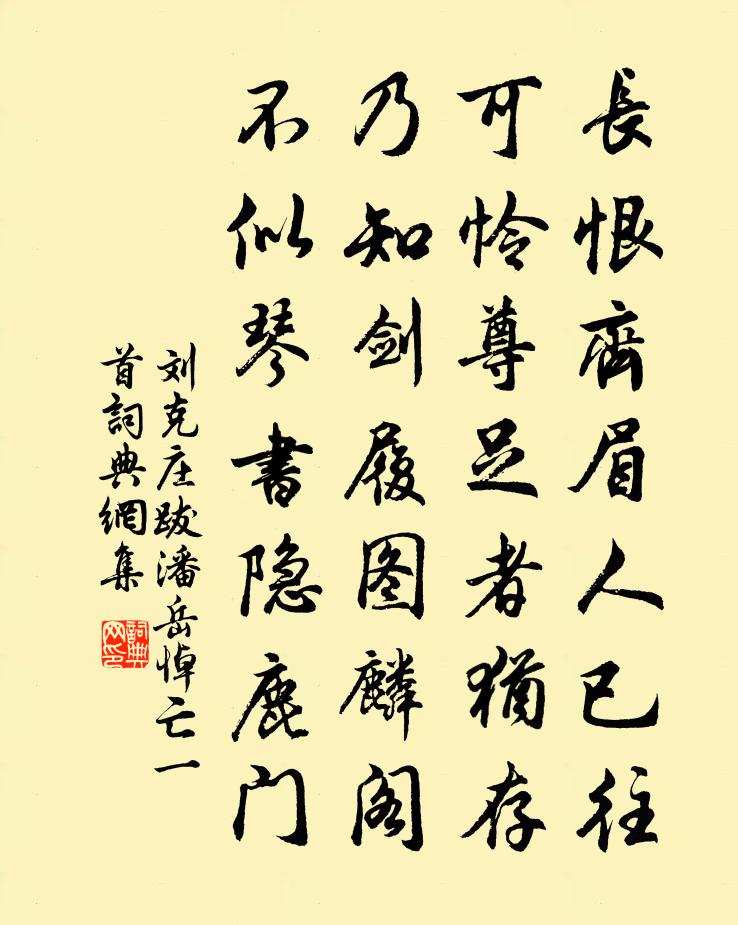 長恨齊眉人已往
可怜尊足者猶存
乃知剑履图麟阁
不似琴書隐鹿门
刘克庄跋潘岳悼亡一
首詞典網集
詞典
网印